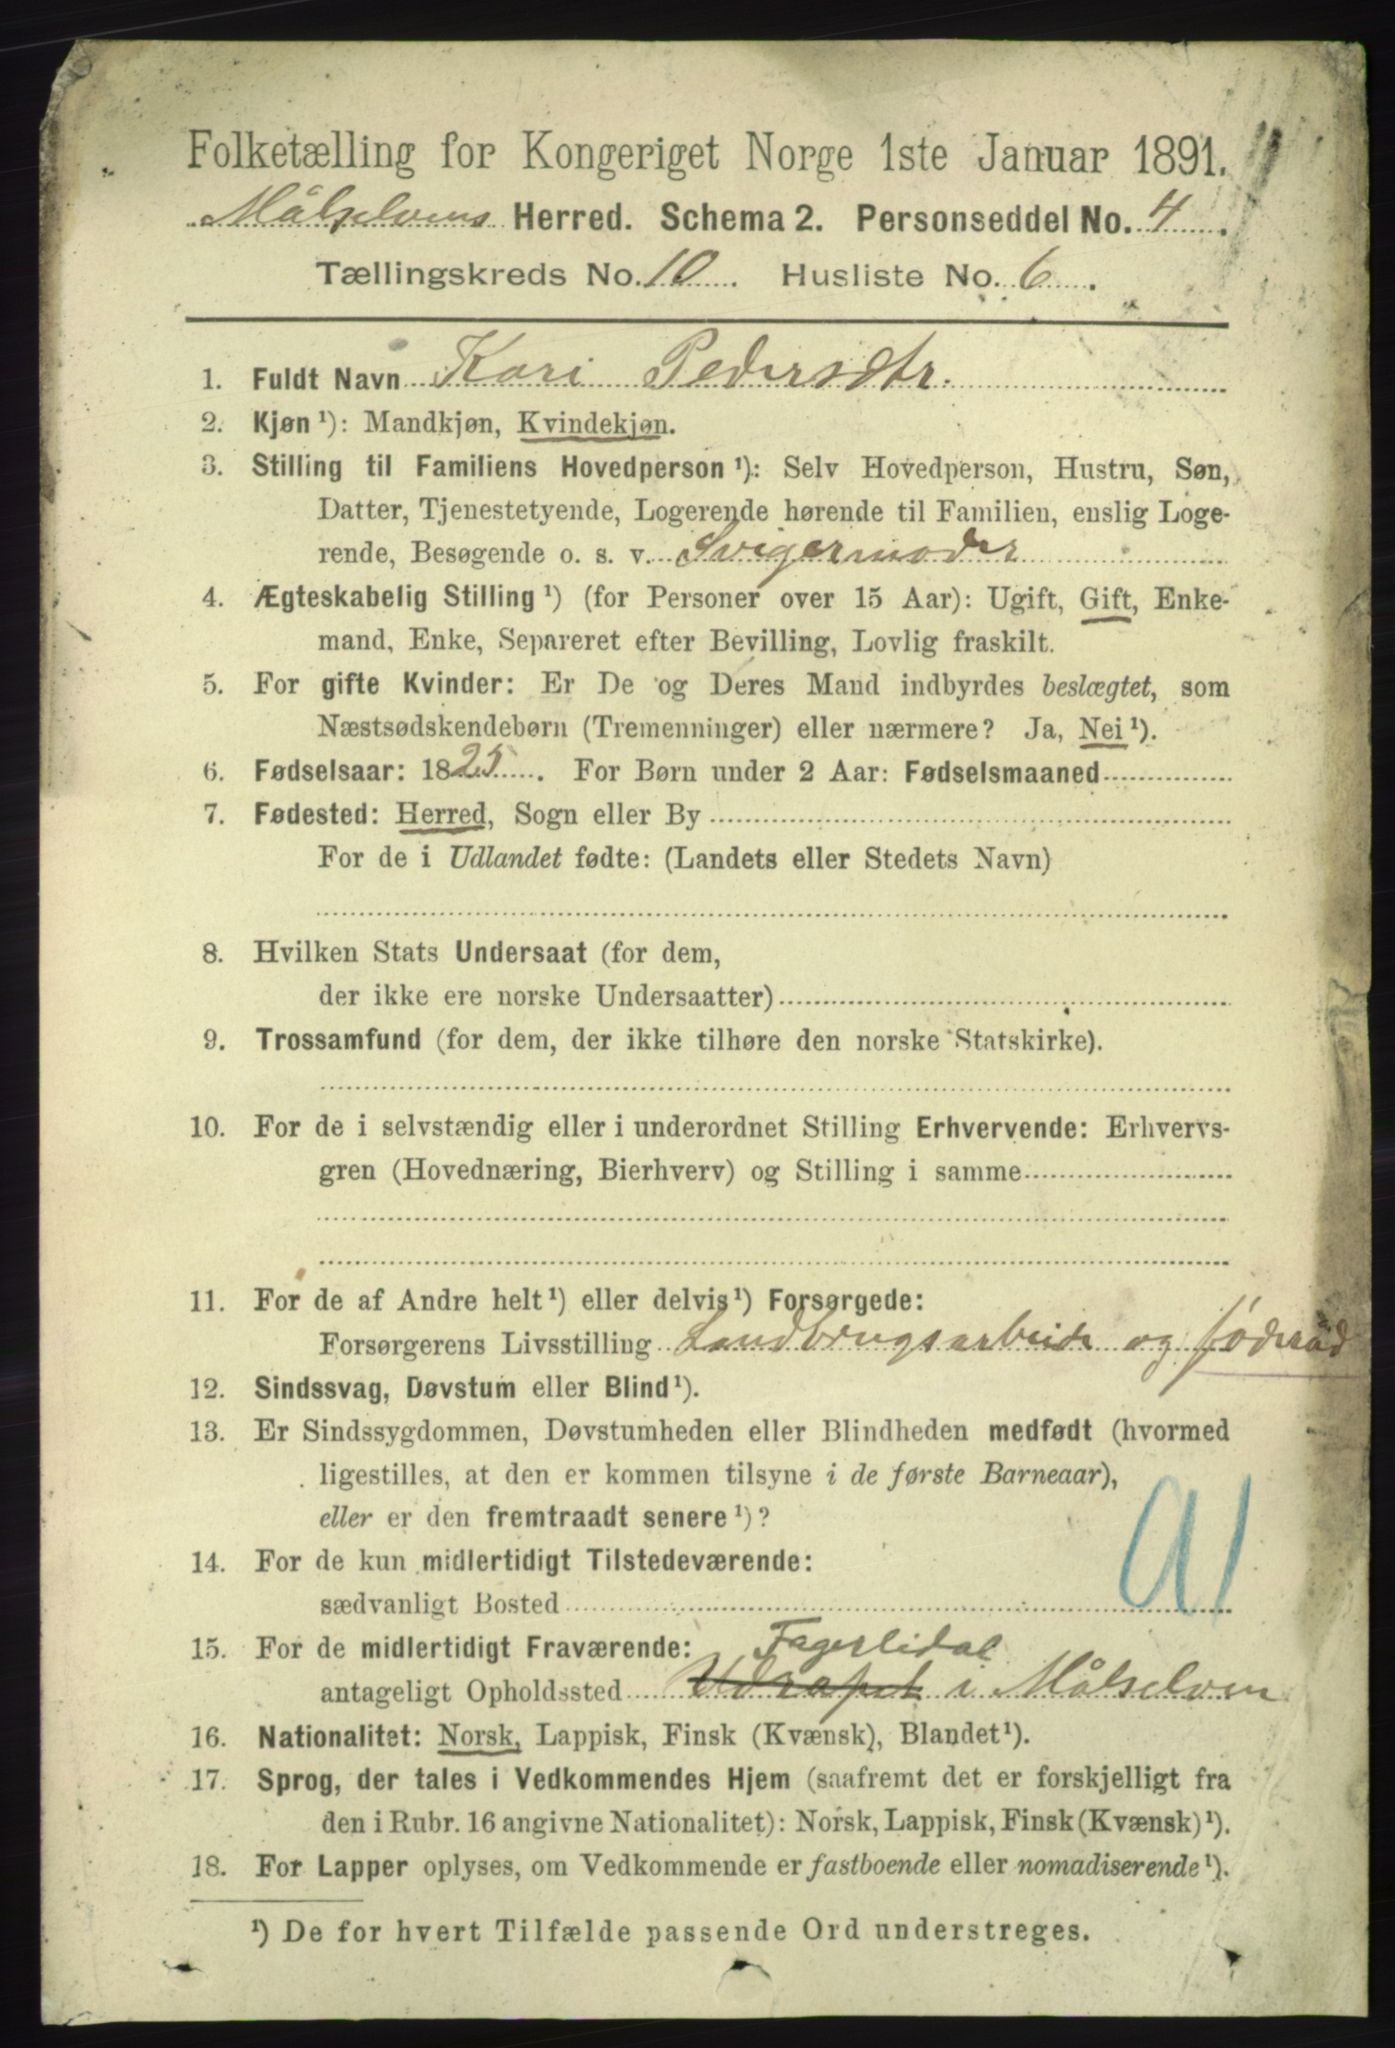 Folketælling for Kongeriget Norge 1ste Januar 1891.
Målselvens Herred. Schema 2. Personseddel No. 4.
Tællingskreds No. 10. Husliste No. 6.
1. Fuldt Navn Kari Pedersdtr.
2. Kjøn ¹): Mandkjøn, Kvindekjøn.
3. Stilling til Familiens Hovedperson ¹): Selv Hovedperson, Hustru, Søn,
Datter, Tjenestetyende, Logerende hørende til Familien, enslig Loge-
rende, Besøgende o. s. v. Svigermoder
4. Ægteskabelig Stilling ¹) (for Personer over 15 Aar): Ugift, Gift, Enke-
mand, Enke, Separeret efter Bevilling, Lovlig fraskilt.
5. For gifte Kvinder: Er De og Deres Mand indbyrdes beslægtet, som
Næstsødskendebørn (Tremenninger) eller nærmere? Ja, Nei ¹).
6. Fødselsaar: 1825. For Børn under 2 Aar: Fødselsmaaned
7. Fødested: Herred, Sogn eller By
For de i Udlandet fødte: (Landets eller Stedets Navn)
8. Hvilken Stats Undersaat (for dem,
der ikke ere norske Undersaatter)
9. Trossamfund (for dem, der ikke tilhøre den norske Statskirke).
10. For de i selvstændig eller i underordnet Stilling Erhvervende: Erhvervs-
gren (Hovednæring, Bierhverv) og Stilling i samme
11. For de af Andre helt ¹) eller delvis ¹) Forsørgede:
Forsørgerens Livsstilling Landbrugsarbeide og föderåd
12. Sindssvag, Døvstum eller Blind ¹).
13. Er Sindssygdommen, Døvstumheden eller Blindheden medfødt (hvormed
ligestilles, at den er kommen tilsyne i de første Barneaar),
eller er den fremtraadt senere ¹)?
91
14. For de kun midlertidigt Tilstedeværende:
sædvanligt Bosted
15. For de midlertidigt Fraværende: Fagerlidal
antageligt Opholdssted i Målselven
16. Nationalitet: Norsk, Lappisk, Finsk (Kvænsk), Blandet ¹).
17. Sprog, der tales i Vedkommendes Hjem (saafremt det er forskjelligt fra
den i Rubr. 16 angivne Nationalitet): Norsk, Lappisk, Finsk (Kvænsk) ¹).
18. For Lapper oplyses, om Vedkommende er fastboende eller nomadiserende ¹).
¹) De for hvert Tilfælde passende Ord understreges.